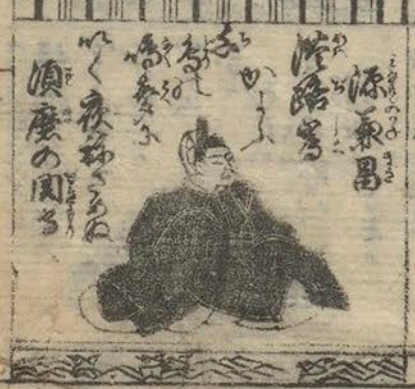 源兼昌
淡路嶌
かよふ
千鳥の
鳴声に
いく夜ねさめぬ
須磨の関守